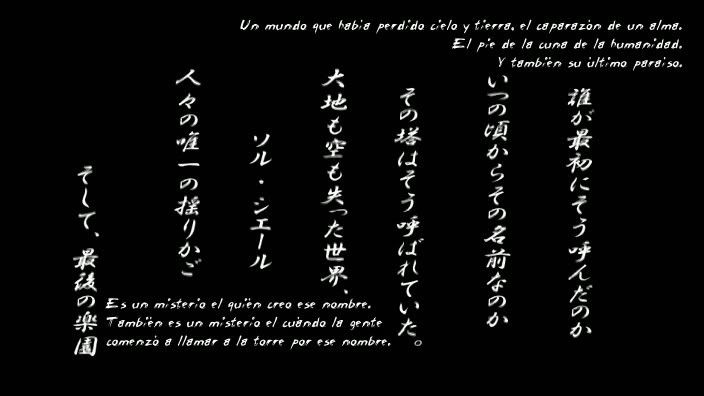 Un mundo que había perdido cielo y tierra, el caparazón de un alma.
El pie de la cuna de la humanidad.
Y también su último paraíso.
誰が最初にそう呼んだのか
いつの頃からその名前なのか
その塔はそう呼ばれていた。
大地も空も失った世界、
ソル・シエール
人々の唯一の揺りかご
そして、最後の楽園
Es un misterio el quién creo ese nombre.
También es un misterio el cuándo la gente
comenzó a llamar a la torre por ese nombre.